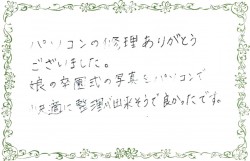 パソコンの修理ありがとう
ございました。
娘の卒園式の写真もパソコンで
快適に整理が出来そうで良かったです。